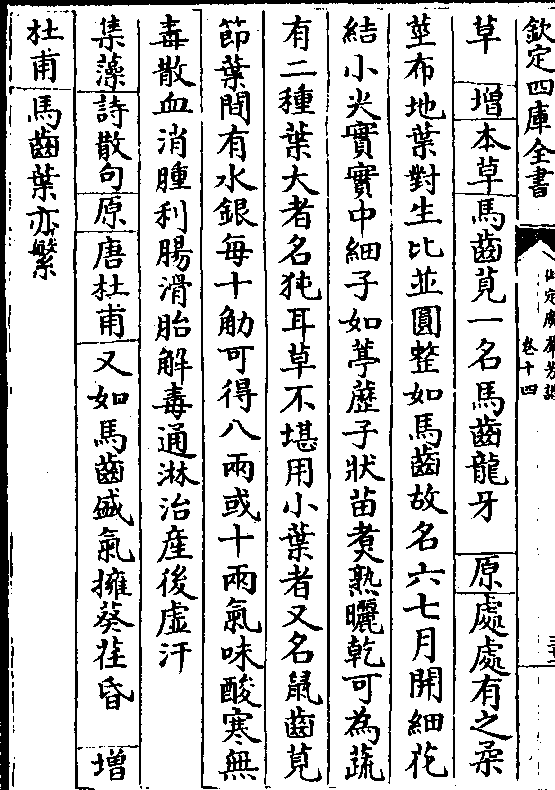 欽定四庫全書
卷十四
草　增本草馬齒莧一名馬齒龍牙　原處處有之柔
莖布地葉對生比並圓整如馬齒故名六七月開細花
結小尖實實中細子如葶藶子狀苗煑熟曬乾可為蔬
有二種葉大者名㹠耳草不堪用小葉者又名鼠齒莧
節葉間有水銀每十觔可得八兩或十兩氣味酸寒無
毒散血消腫利腸滑胎解毒通淋治産後虚汗
集藻詩散句原唐杜甫又如馬齒盛氣擁葵荏昏　增
杜甫馬齒葉亦繁